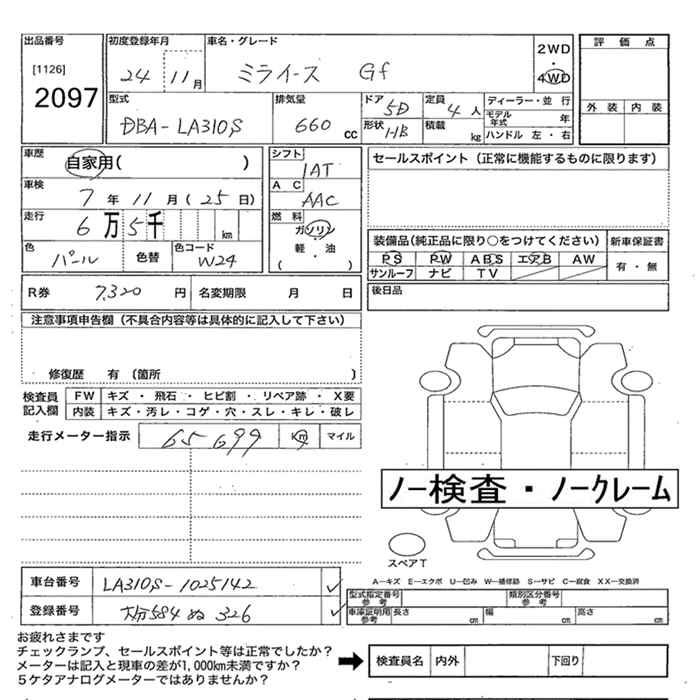 出品番号
[1126]
2097
初度登録年月
24 11月
車名・グレード
ミライース Gf
2WD
・
4WD
評価点
外装 内装
型式
DBA-LA310S
排気量
660 cc
ドア 5D
形状 HB
定員 4人
積載 kg
ディーラー・並行
モデル年式 年
ハンドル 左・右
車歴
自家用( )
車検
7年11月(25日)
走行
6万5千 km
色
パール
色替
色コード
W24
シフト
1AT
AC
AAC
燃料
ガソリン
軽・油
( )
セールスポイント(正常に機能するものに限ります)
装備品(純正品に限り○をつけてください)
新車保証書
PS PW ABS エアB AW
サンルーフ ナビ TV
有・無
後日品
R券 7,320 円 名変期限 月 日
注意事項申告欄(不具合内容等は具体的に記入して下さい)
修復歴 有(箇所 )
検査員記入欄
FW キズ・飛石・ヒビ割・リペア跡・X要
内装 キズ・汚レ・コゲ・穴・スレ・キレ・破レ
走行メーター指示 65699 Km マイル
ノー検査・ノークレーム
スペアT
A-キズ E-エクボ U-凹み W-補修跡 S-サビ C-腐食 XX-交換済
車台番号 LA310S-1025142
登録番号 大分584 ぬ 326
型式指定番号 参考
類別区分番号 参考
車庫証明用 参考 長さ cm 幅 cm 高さ cm
お疲れさまです
チェックランプ、セールスポイント等は正常でしたか?
メーターは記入と現車の差が1,000km未満ですか?
5ケタアナログメーターではありませんか?
検査員名 内外 下回り